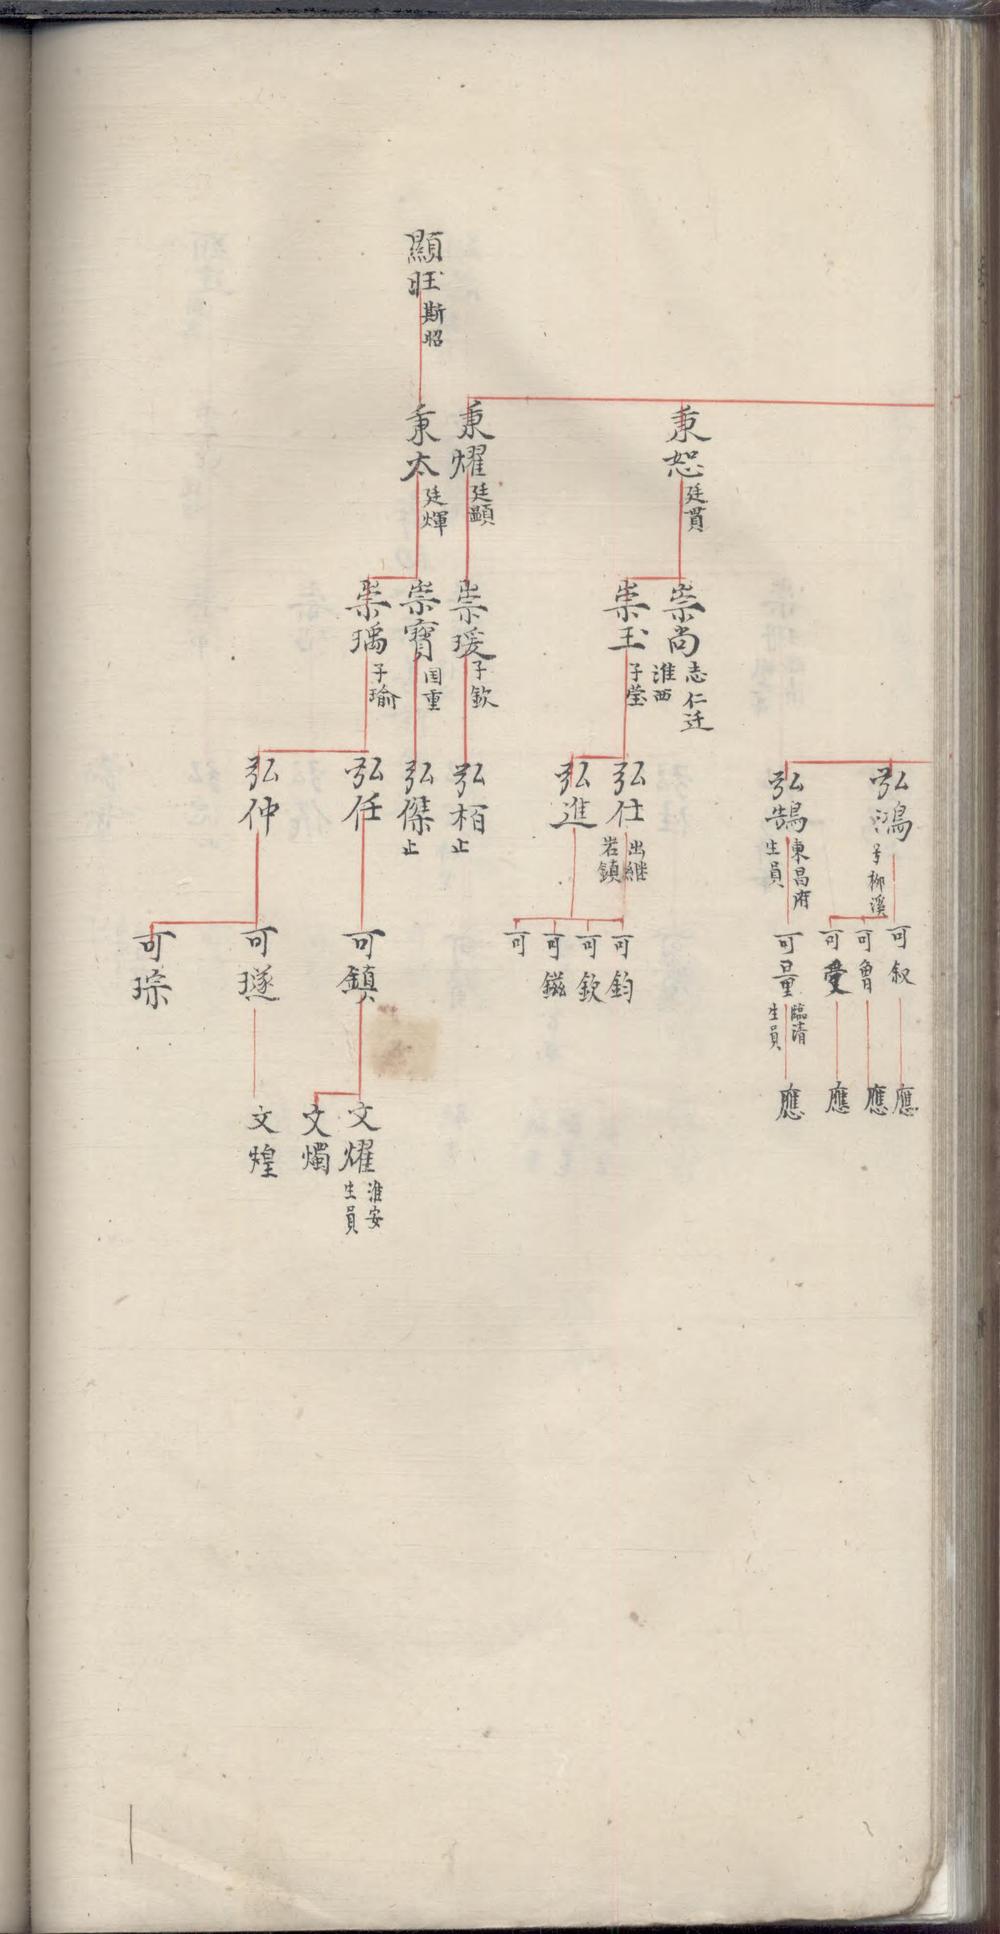 顯旺 斯昭
秉恕 廷貫
秉燿 廷顯
秉太 廷煇
崇尚 志仁迁
淮西
崇玉 子瑩
崇瑗 子欽
崇寶 国重
崇瑀 子瑜
弘鴻 号柳溪
弘鵠 東昌府
生員
弘仕 出継
岩鎮
弘進
弘栢 止
弘傑 止
弘任
弘仲
可叙
可魯
可愛
可量 臨清
生員
可鈞
可欽
可鎡
可
可鎮
可璲
可琮
應
應
應
應
文燿 淮安
生員
文燭
文煌